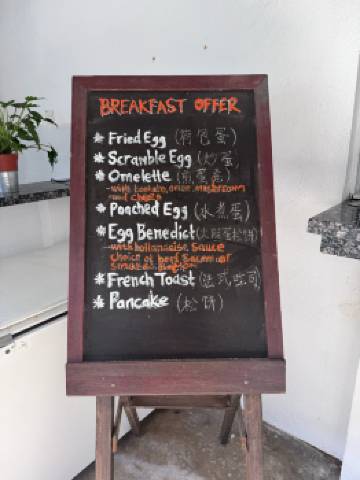 BREAKFAST OFFER
* Fried Egg (荷包蛋)
* Scramble Egg (炒蛋)
* Omelette (煎蛋卷)
-with tomato, onion, mushroom
and cheese
* Poached Egg (水煮蛋)
* Egg Benedict
-with hollandaise sauce
choice of beef bacon or
smoked
* French Toast (法式吐司)
* Pancake (松饼)